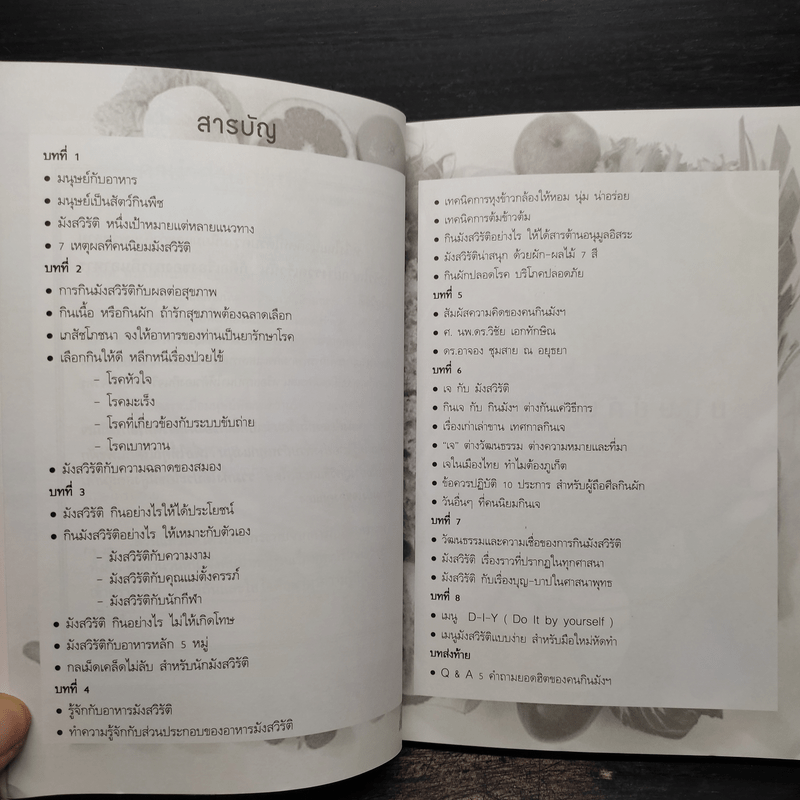 สารบัญ
บทที่ 1
• มนุษย์กับอาหาร
• มนุษย์เป็นสัตว์กินพืช
• มังสวิรัติ หนึ่งเป้าหมายแต่หลายแนวทาง
• 7 เหตุผลที่คนนิยมมังสวิรัติ
บทที่ 2
• การกินมังสวิรัติกับผลต่อสุขภาพ
• กินเนื้อ หรือกินผัก ถ้ารักสุขภาพต้องฉลาดเลือก
• เภสัชโภชนา จงให้อาหารของท่านเป็นยารักษาโรค
• เลือกกินให้ดี หลีกหนีเรื่องป่วยไข้
– โรคหัวใจ
– โรคมะเร็ง
– โรคที่เกี่ยวข้องกับระบบขับถ่าย
– โรคเบาหวาน
• มังสวิรัติกับความฉลาดของสมอง
บทที่ 3
• มังสวิรัติ กินอย่างไรให้ได้ประโยชน์
• กินมังสวิรัติอย่างไร ให้เหมาะกับตัวเอง
– มังสวิรัติกับความงาม
– มังสวิรัติกับคุณแม่ตั้งครรภ์
– มังสวิรัติกับนักกีฬา
• มังสวิรัติ กินอย่างไร ไม่ให้เกิดโทษ
• มังสวิรัติกับอาหารหลัก 5 หมู่
• กลเม็ดเคล็ดไม่ลับ สำหรับนักมังสวิรัติ
บทที่ 4
• รู้จักกับอาหารมังสวิรัติ
• ทำความรู้จักกับส่วนประกอบของอาหารมังสวิรัติ
• เทคนิคการหุงข้าวกล้องให้หอม นุ่ม น่าอร่อย
• เทคนิคการต้มข้าวต้ม
• กินมังสวิรัติอย่างไร ให้ได้สารต้านอนุมูลอิสระ
• มังสวิรัติน่าสนุก ด้วยผัก-ผลไม้ 7 สี
• กินผักปลอดโรค บริโภคปลอดภัย
บทที่ 5
• สัมผัสความคิดของคนกินมังฯ
• ศ. นพ.ดร.วิชัย เอกทักษิณ
• ดร.อาจอง ชุมสาย ณ อยุธยา
บทที่ 6
• เจ กับ มังสวิรัติ
• กินเจ กับ กินมังฯ ต่างกันแค่วิธีการ
• เรื่องเก่าเล่าขาน เทศกาลกินเจ
• “เจ” ต่างวัฒนธรรม ต่างความหมายและที่มา
• เจในเมืองไทย ทำไมต้องภูเก็ต
• ข้อควรปฏิบัติ 10 ประการ สำหรับผู้ถือศีลกินผัก
• วันอื่นๆ ที่คนนิยมกินเจ
บทที่ 7
• วัฒนธรรมและความเชื่อของการกินมังสวิรัติ
• มังสวิรัติ เรื่องราวที่ปรากฏในทุกศาสนา
• มังสวิรัติ กับเรื่องบุญ-บาปในศาสนาพุทธ
บทที่ 8
• เมนู D-I-Y ( Do It by yourself )
• เมนูมังสวิรัติแบบง่าย สำหรับมือใหม่หัดทำ
บทส่งท้าย
• Q & A 5 คำถามยอดฮิตของคนกินมังฯ